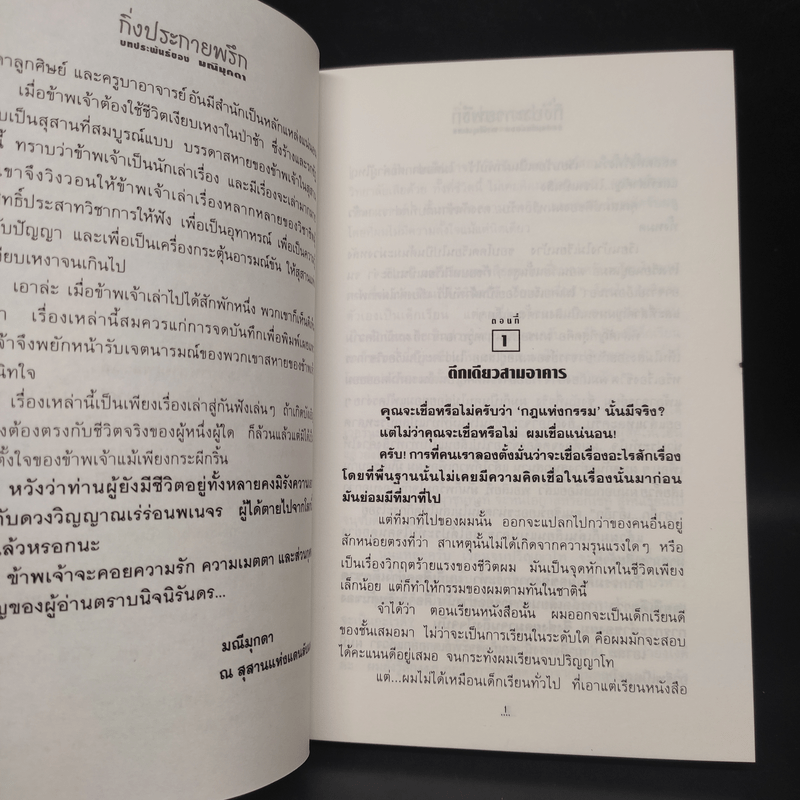 กิ่งประกายพรึก
บทประพันธ์ของ มณีมุกดา
ลูกศิษย์ และครูบาอาจารย์อันมีสำนักเป็นหลักแหล่ง
เมื่อข้าพเจ้าต้องใช้ชีวิตเงียบเหงาในป่าช้า ซึ่งร้าง
เป็นสุสานที่สมบูรณ์แบบ บรรดาสหายของข้าพเจ้าใน
ทราบว่าข้าพเจ้าเป็นนักเล่าเรื่อง และมีเรื่องจะเล่า
เขาจึงวิงวอนให้ข้าพเจ้าเล่าเรื่องหลากหลายของ
สิทธิ์ประสาทวิชาการให้ฟัง เพื่อเป็นอุทาหรณ์ เพื่อเป็น
ปัญญา และเพื่อเป็นเครื่องกระตุ้นอารมณ์ขัน ให้
เงียบเหงาจนเกินไป
เอาล่ะ เมื่อข้าพเจ้าเล่าไปได้สักพักหนึ่ง พวกเขาก็เห็น
เรื่องเหล่านี้สมควรแก่การจดบันทึกเพื่อพิมพ์
จึงพยักหน้ารับเจตนารมณ์ของพวกเขาสหายของ
สนิทใจ
เรื่องเหล่านี้เป็นเพียงเรื่องเล่าสู่กันฟังเล่นๆ ถ้าเกิด
ต้องตรงกับชีวิตจริงของผู้หนึ่งผู้ใด ก็ล้วนแล้วแต่
ตั้งใจของข้าพเจ้าแม้เพียงกระผีกริ้น
หวังว่าท่านผู้ยังมีชีวิตอยู่ทั้งหลายคงมิรัง
กับดวงวิญญาณเร่ร่อนพเนจร ผู้ได้ตายไปจาก
แล้วหรอกนะ
ข้าพเจ้าจะคอยความรัก ความเมตตา และ
ของผู้อ่านตราบนิจนิรันดร...
มณีมุกดา
ณ สุสานแห่งแดน
ตอนที่
1
ตึกเดียวสามอาคาร
คุณจะเชื่อหรือไม่ครับว่า ‘กฎแห่งกรรม’ นั้นมีจริง?
แต่ไม่ว่าคุณจะเชื่อหรือไม่ ผมเชื่อแน่นอน!
ครับ! การที่คนเราลองตั้งมั่นว่าจะเชื่อเรื่องอะไรสักเรื่อง
โดยที่พื้นฐานนั้นไม่เคยมีความคิดเชื่อในเรื่องนั้นมาก่อน
มันย่อมมีที่มาที่ไป
แต่ที่มาที่ไปของผมนั้น ออกจะแปลกไปกว่าของคนอื่นอยู่
สักหน่อยตรงที่ว่า สาเหตุนั้นไม่ได้เกิดจากความรุนแรงใดๆ หรือ
เป็นเรื่องวิกฤตร้ายแรงของชีวิตผม มันเป็นจุดหักเหในชีวิตเพียง
เล็กน้อย แต่ก็ทำให้กรรมของผมตามทันในชาตินี้
จำได้ว่า ตอนเรียนหนังสือนั้น ผมออกจะเป็นเด็กเรียนดี
ของชั้นเสมอมา ไม่ว่าจะเป็นการเรียนในระดับใด คือผมมักจะสอบ
ได้คะแนนดีอยู่เสมอ จนกระทั่งผมเรียนจบปริญญาโท
แต่...ผมไม่ได้เหมือนเด็กเรียนทั่วไป ที่เอาแต่เรียนหนังสือ
1